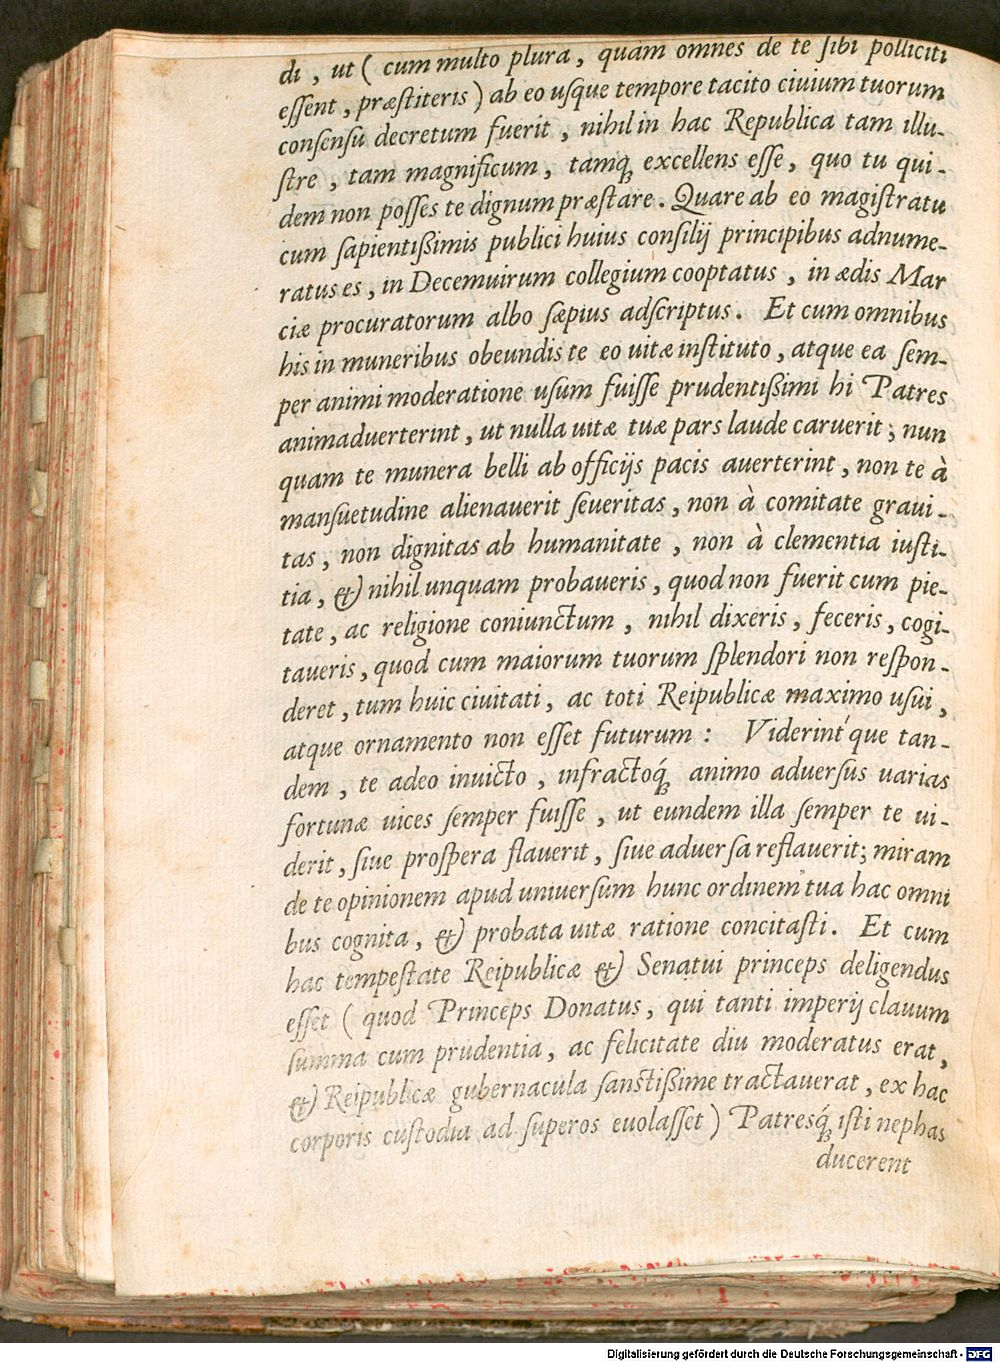 di, ut ( cum multo plura, quam omnes de te sibi polliciti
essent, præstiteris ) ab eo usque tempore tacito ciuium tuorum
consensu decretum fuerit, nihil in hac Republica tam illu-
stre, tam magnificum, tamq́; excellens esse, quo tu qui-
dem non posses te dignum præstare. Quare ab eo magistratu
cum sapientißimis publici huius consilij principibus adnume-
ratus es, in Decemuirum collegium cooptatus, in ædis Mar
ciæ procuratorum albo sæpius adscriptus. Et cum omnibus
his in muneribus obeundis te eo uitæ instituto, atque ea sem-
per animi moderatione usum fuisse prudentißimi hi Patres
animaduerterint, ut nulla uitæ tuæ pars laude caruerit; nun
quam te munera belli ab officijs pacis auerterint, non te à
mansuetudine alienauerit seueritas, non à comitate graui-
tas, non dignitas ab humanitate, non à clementia iusti-
tia, & nihil unquam probaueris, quod non fuerit cum pie-
tate, ac religione coniunctum, nihil dixeris, feceris, cogi-
taueris, quod cum maiorum tuorum splendori non respon-
deret, tum huic ciuitati, ac toti Reipublicæ maximo usui,
atque ornamento non esset futurum: Viderint́que tan-
dem, te adeo inuicto, infractoq́; animo aduersus uarias
fortunæ uices semper fuisse, ut eundem illa semper te ui-
derit, siue prospera flauerit, siue aduersa reflauerit; miram
de te opinionem apud uniuersum hunc ordinem tua hac omni
bus cognita, & probata uitæ ratione concitasti. Et cum
hac tempestate Reipublicæ & Senatui princeps deligendus
esset ( quod Princeps Donatus, qui tanti imperij clauum
summa cum prudentia, ac felicitate diu moderatus erat,
& Reipublicæ gubernacula sanctißime tractauerat, ex hac
corporis custodia ad superos euolasset ) Patresq́; isti nephas
ducerent
Digitalisierung gefördert durch die Deutsche Forschungsgemeinschaft - DFG